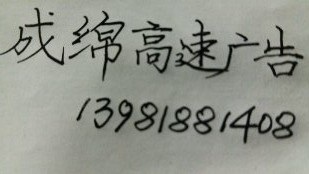 成绵高速广告
13981881408